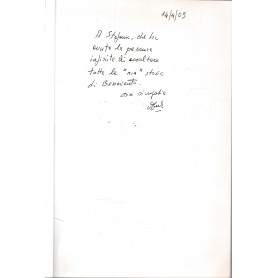 14/4/05
A Stefania, che ha
avuto la pazienza
infinita di ascoltare
tutte le "mie" storie
di Benevento.
con simpatia